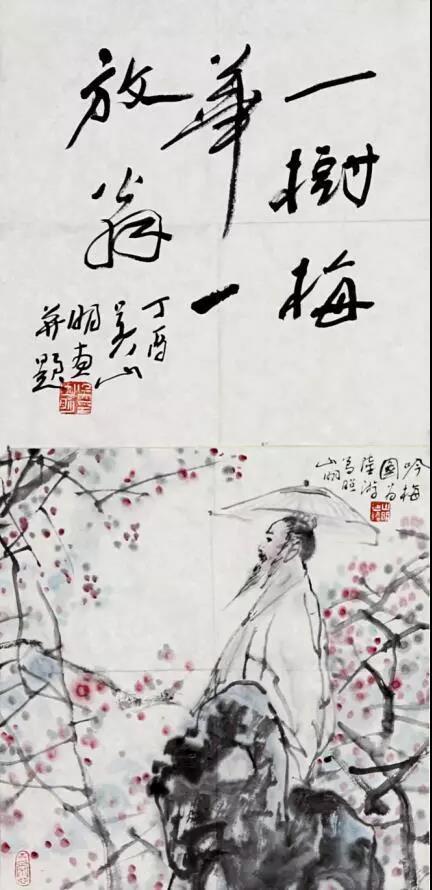 一樹梅
華一
放翁
丁酉
吴山
明画
并題
吟梅
圖为
陸游
写照
山明